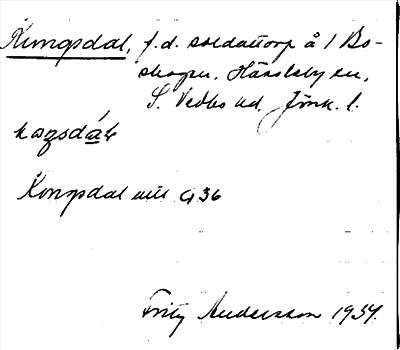 Kungsdal, f.d. soldattorp å 1 Bo-
skogen, Hässleby sn,
S. Vedbo hd, Jönk. l.
kɷŋsdɑ́l
Kongsdal G 36
Fritz Andersson 1934.